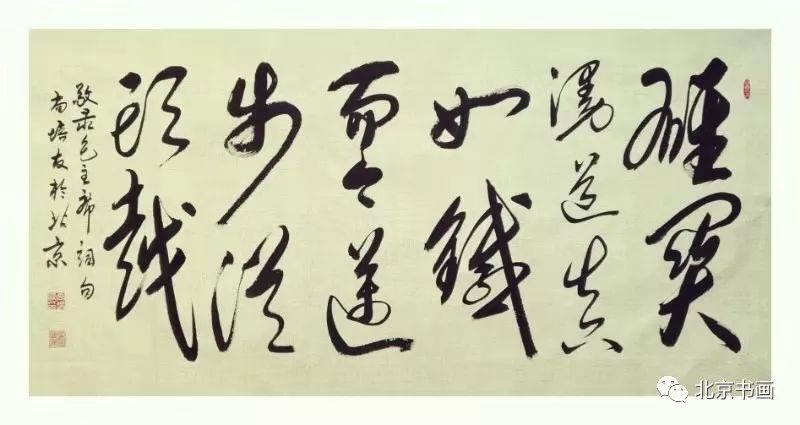 雄關
漫道真
如鐵
而今邁
步從
頭越
敬录毛主席詞句
尚培友於北京
北京书画